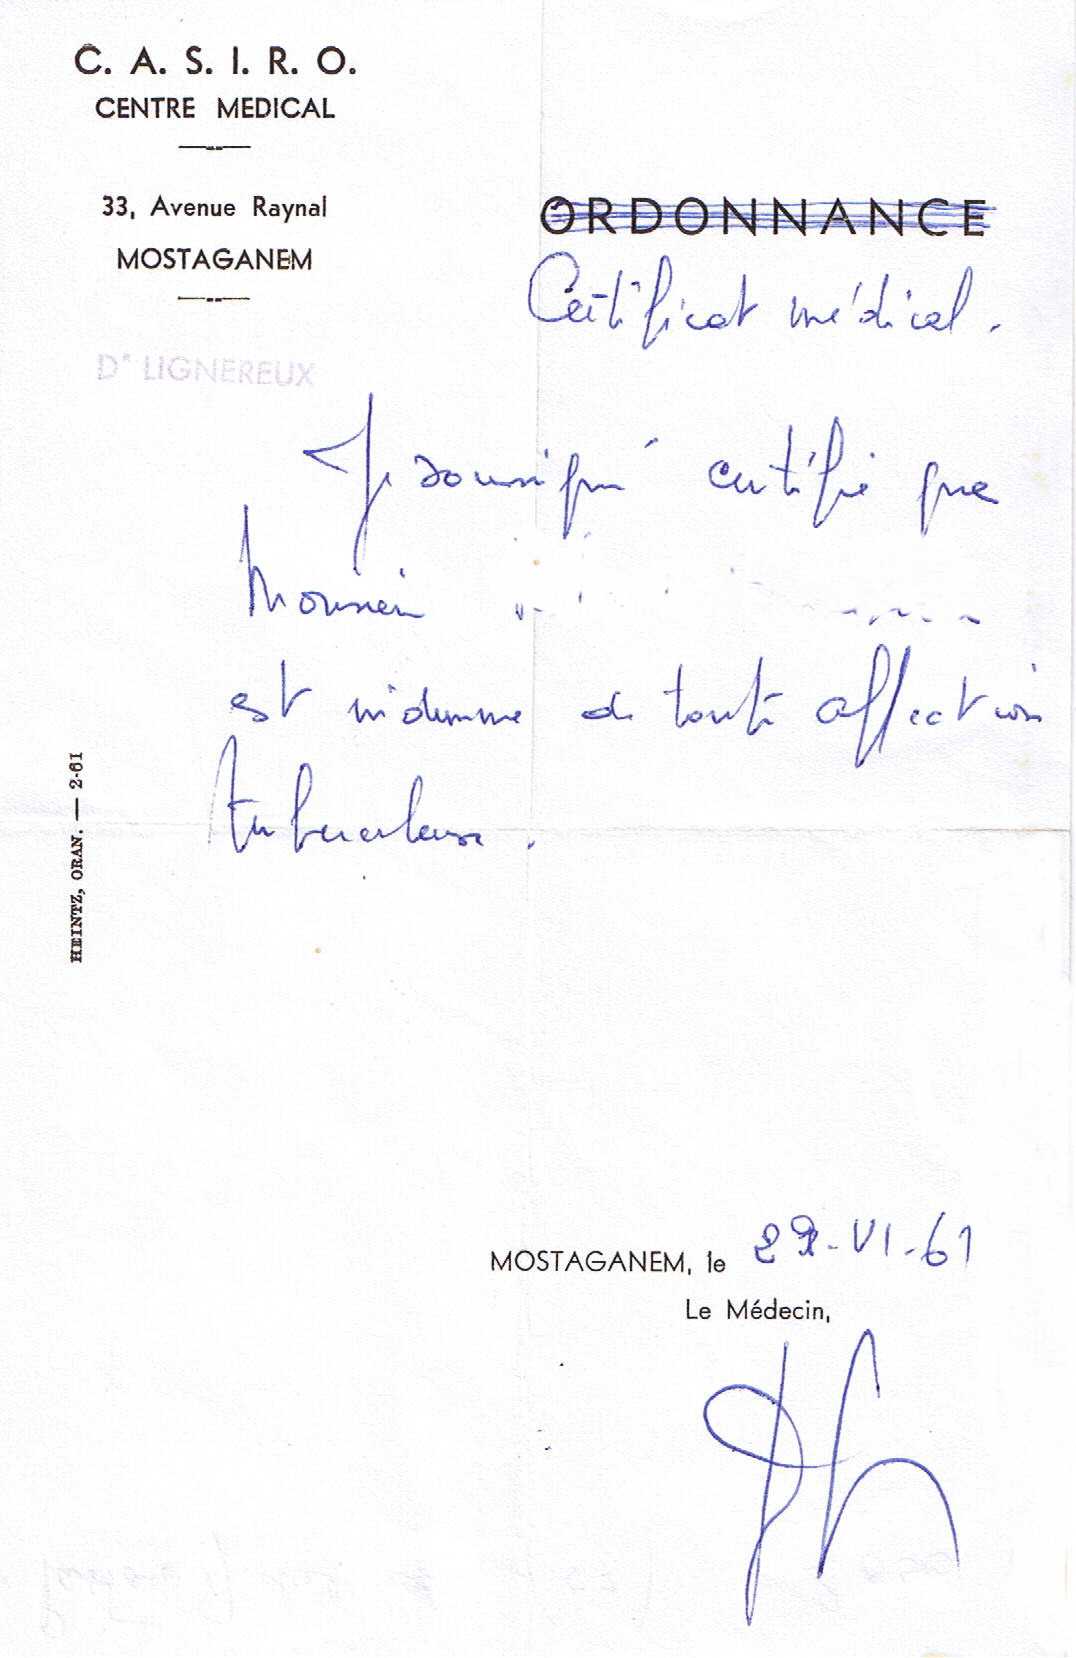 C. A. S. I. R. O.
CENTRE MEDICAL
33, Avenue Raynal
MOSTAGANEM
Dr LIGNEREUX
ORDONNANCE
Certificat médical.
Je soussigné certifie que
Monsieur
est indemne de toute affection
tuberculeuse.
HEINTZ, ORAN. — 2-61
MOSTAGANEM, le -VI-61
Le Médecin,